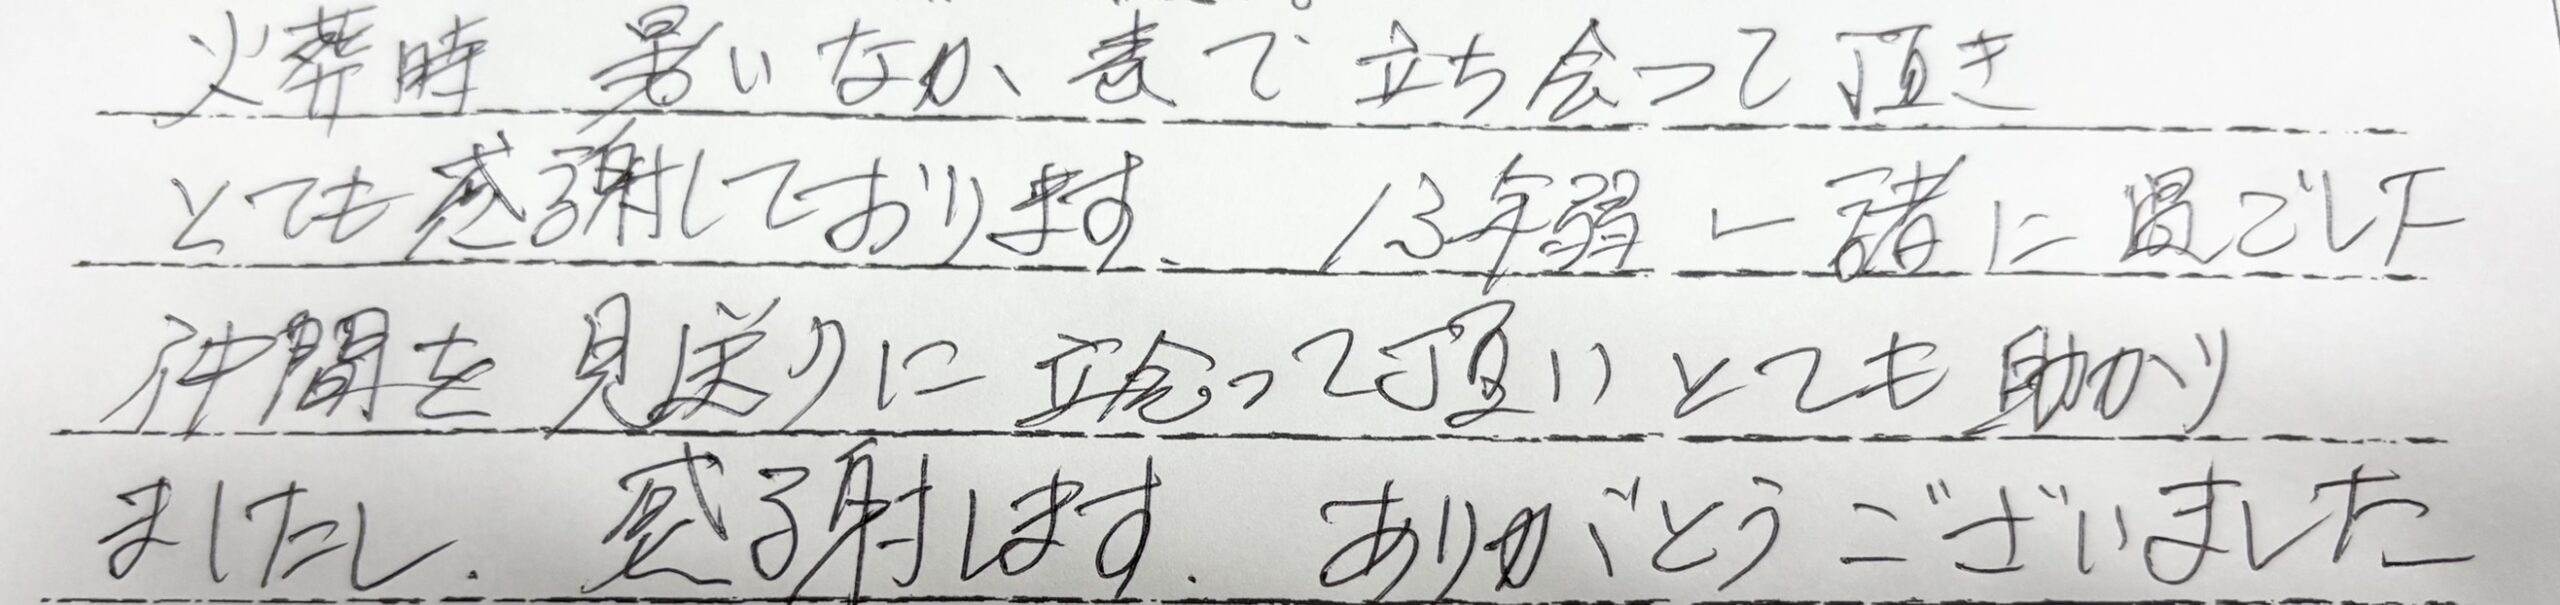 火葬時 暑いなか、表で立ち会って頂き
とても感謝しております. 13年弱一諸に過ごした
仲間を見送りに立会って頂いとても助かり
ましたし. 感謝します. ありがとうございました